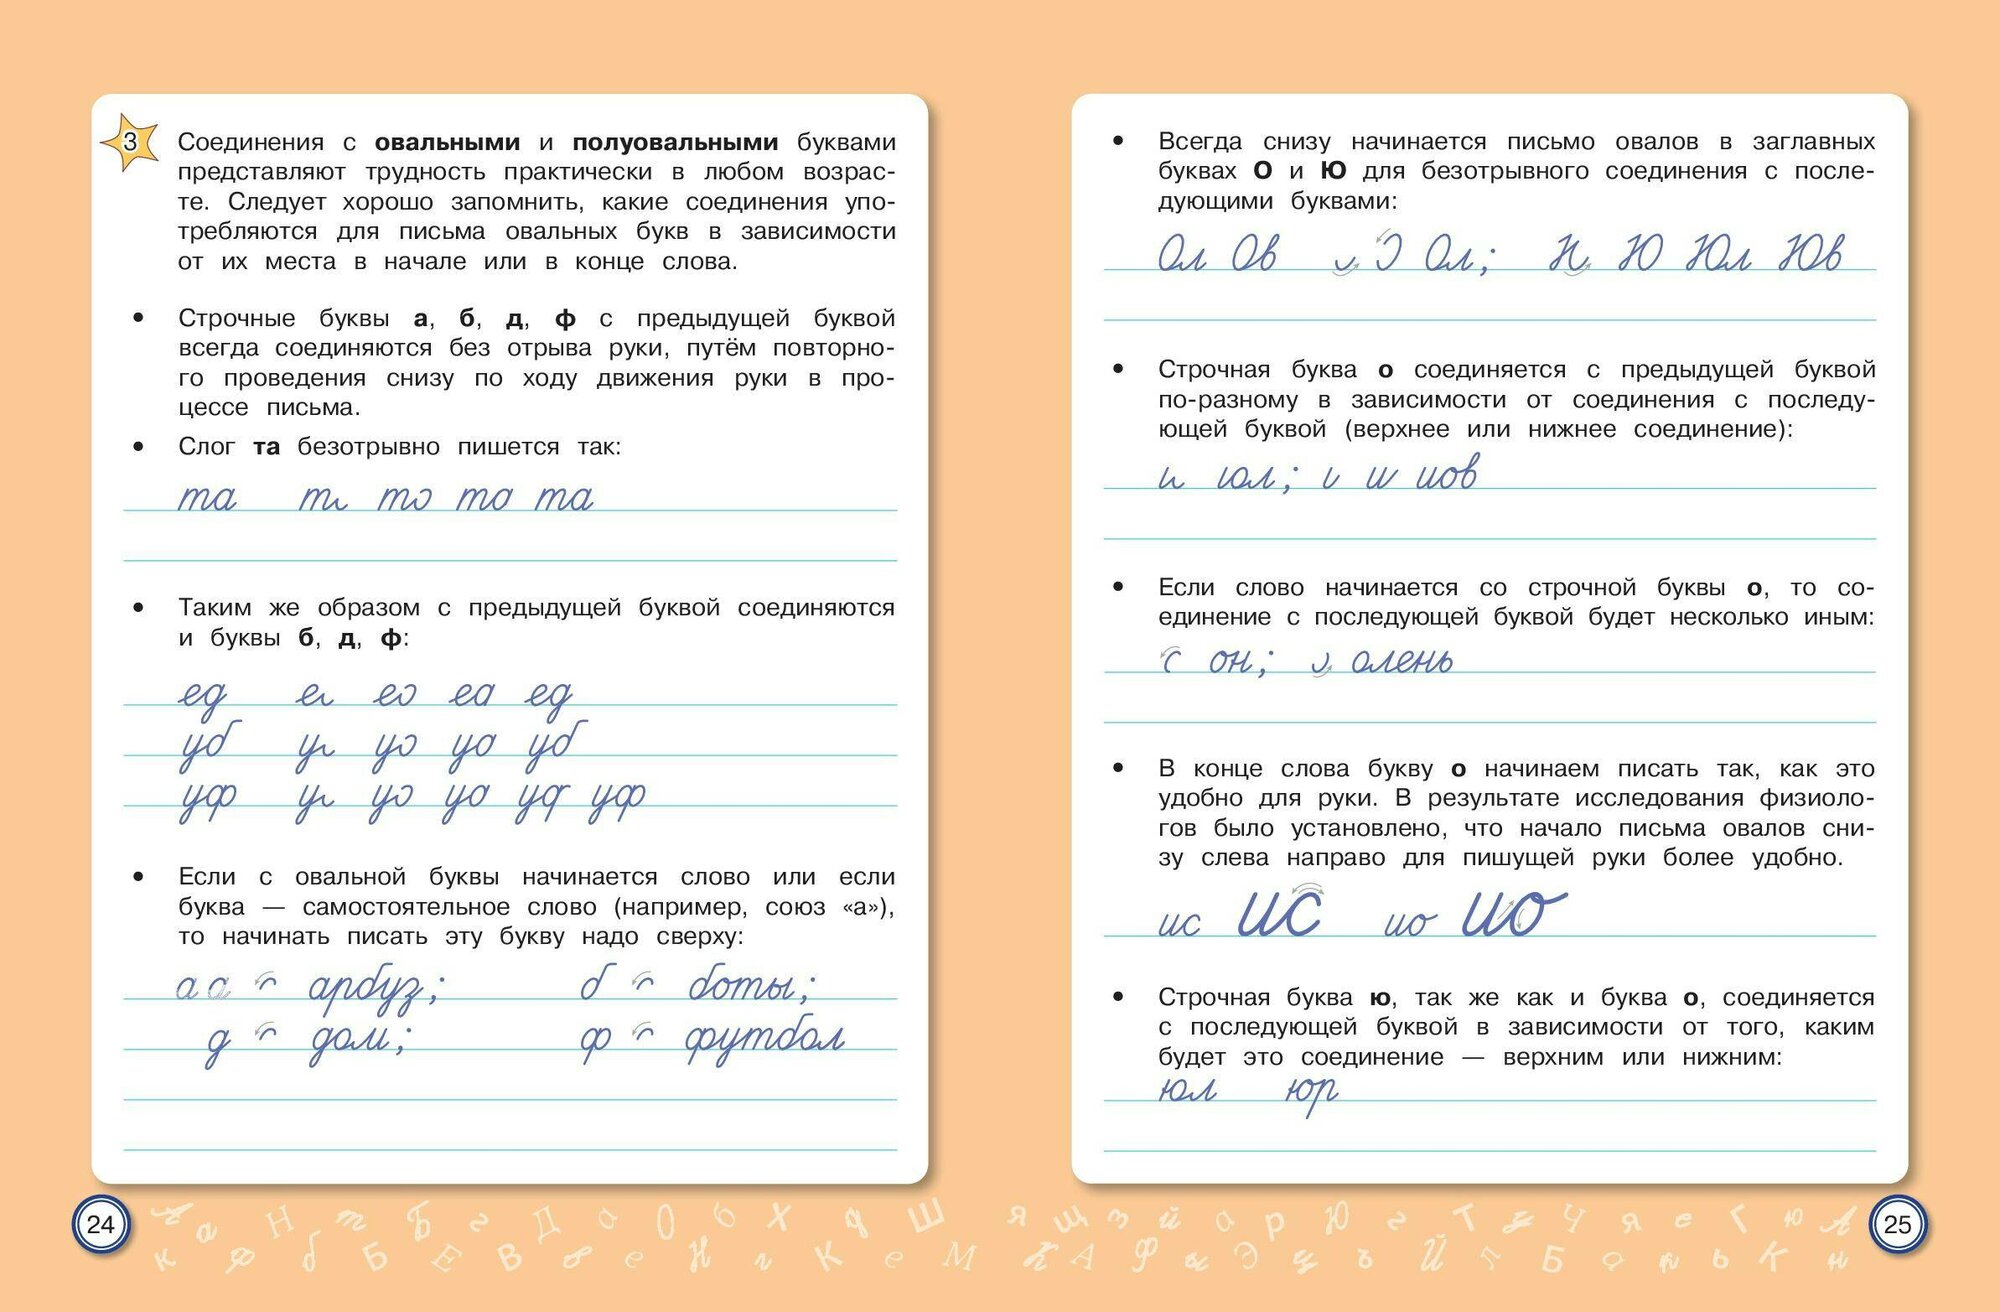 3
Соединения с овальными и полуовальными буквами
представляют трудность практически в любом возрас-
те. Следует хорошо запомнить, какие соединения упо-
требляются для письма овальных букв в зависимости
от их места в начале или в конце слова.
• Строчные буквы а, б, д, ф с предыдущей буквой
всегда соединяются без отрыва руки, путём повторно-
го проведения снизу по ходу движения руки в про-
цессе письма.
• Слог та безотрывно пишется так:
та та та
• Таким же образом с предыдущей буквой соединяются
и буквы б, д, ф:
ед еа ед
уб уб
уф уф
• Если с овальной буквы начинается слово или если
буква — самостоятельное слово (например, союз «а»),
то начинать писать эту букву надо сверху:
а а арбуз; б боты;
д дом; ф футбол
24
• Всегда снизу начинается письмо овалов в заглавных
буквах О и Ю для безотрывного соединения с после-
дующими буквами:
Ол Ов Ол; Ю Юл Юв
• Строчная буква о соединяется с предыдущей буквой
по-разному в зависимости от соединения с последу-
ющей буквой (верхнее или нижнее соединение):
юл; и иов
• Если слово начинается со строчной буквы о, то со-
единение с последующей буквой будет несколько иным:
он; олень
• В конце слова букву о начинаем писать так, как это
удобно для руки. В результате исследования физиоло-
гов было установлено, что начало письма овалов сни-
зу слева направо для пишущей руки более удобно.
ис ис ио ио
• Строчная буква ю, так же как и буква о, соединяется
с последующей буквой в зависимости от того, каким
будет это соединение — верхним или нижним:
юл юр
25